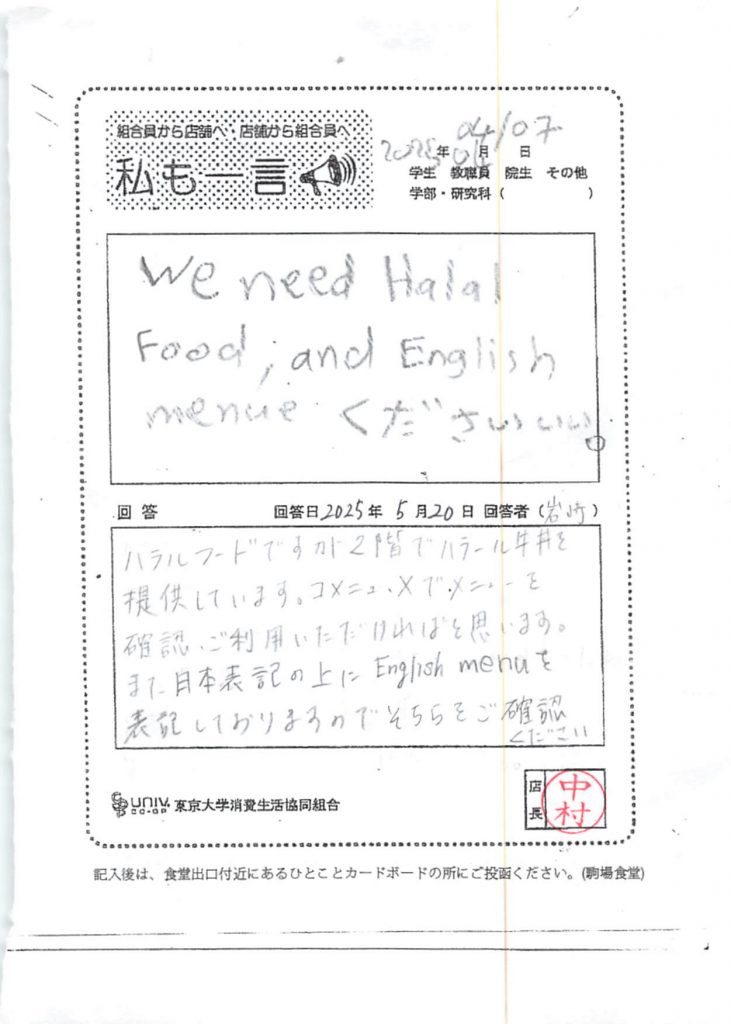 組合員から店舗へ・店舗から組合員へ
私も一言
2025年 04月 日
04/07
学生 教職員 院生 その他
学部・研究科( )
We need Halal
Food, and English
menue くださいいい。
回答 回答日2025年 5月20日 回答者(岩崎)
ハラルフードですが2階でハラール牛丼を
提供しています。コメニュ.Xで.メニューを
確認、ご利用いただければと思います。
また日本表記の上に English menuを
表記しておりますのでそちらをご確認
ください
UNIV.
CO-OP 東京大学消費生活協同組合
店長
中村
記入後は、食堂出口付近にあるひとことカードボードの所にご投函ください。(駒場食堂)